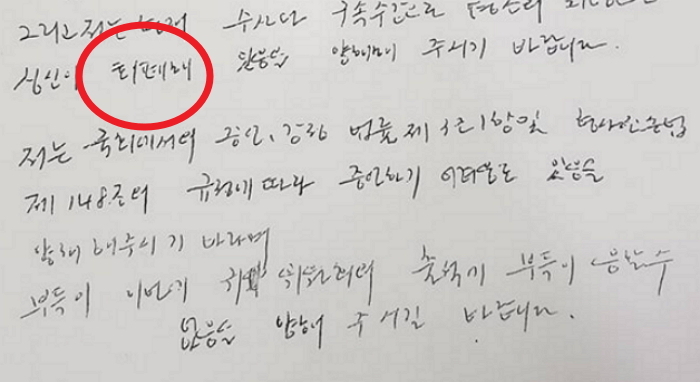 그리고 저는 현재 수사와 구속수감으로 평소의
심신이 회폐해 있음을 양해해 주시기 바랍니다.
저는 국회에서의 증언, 감정 법률 제 3조 1항및 형사소송법
제 148조의 규정에 따라 증언하기 어려움도 있음을
양해 해주시기 바라며
부득이 이번 귀 위원회의 출석 부득이 응할수
없음을 양해 주시길 바랍니다.